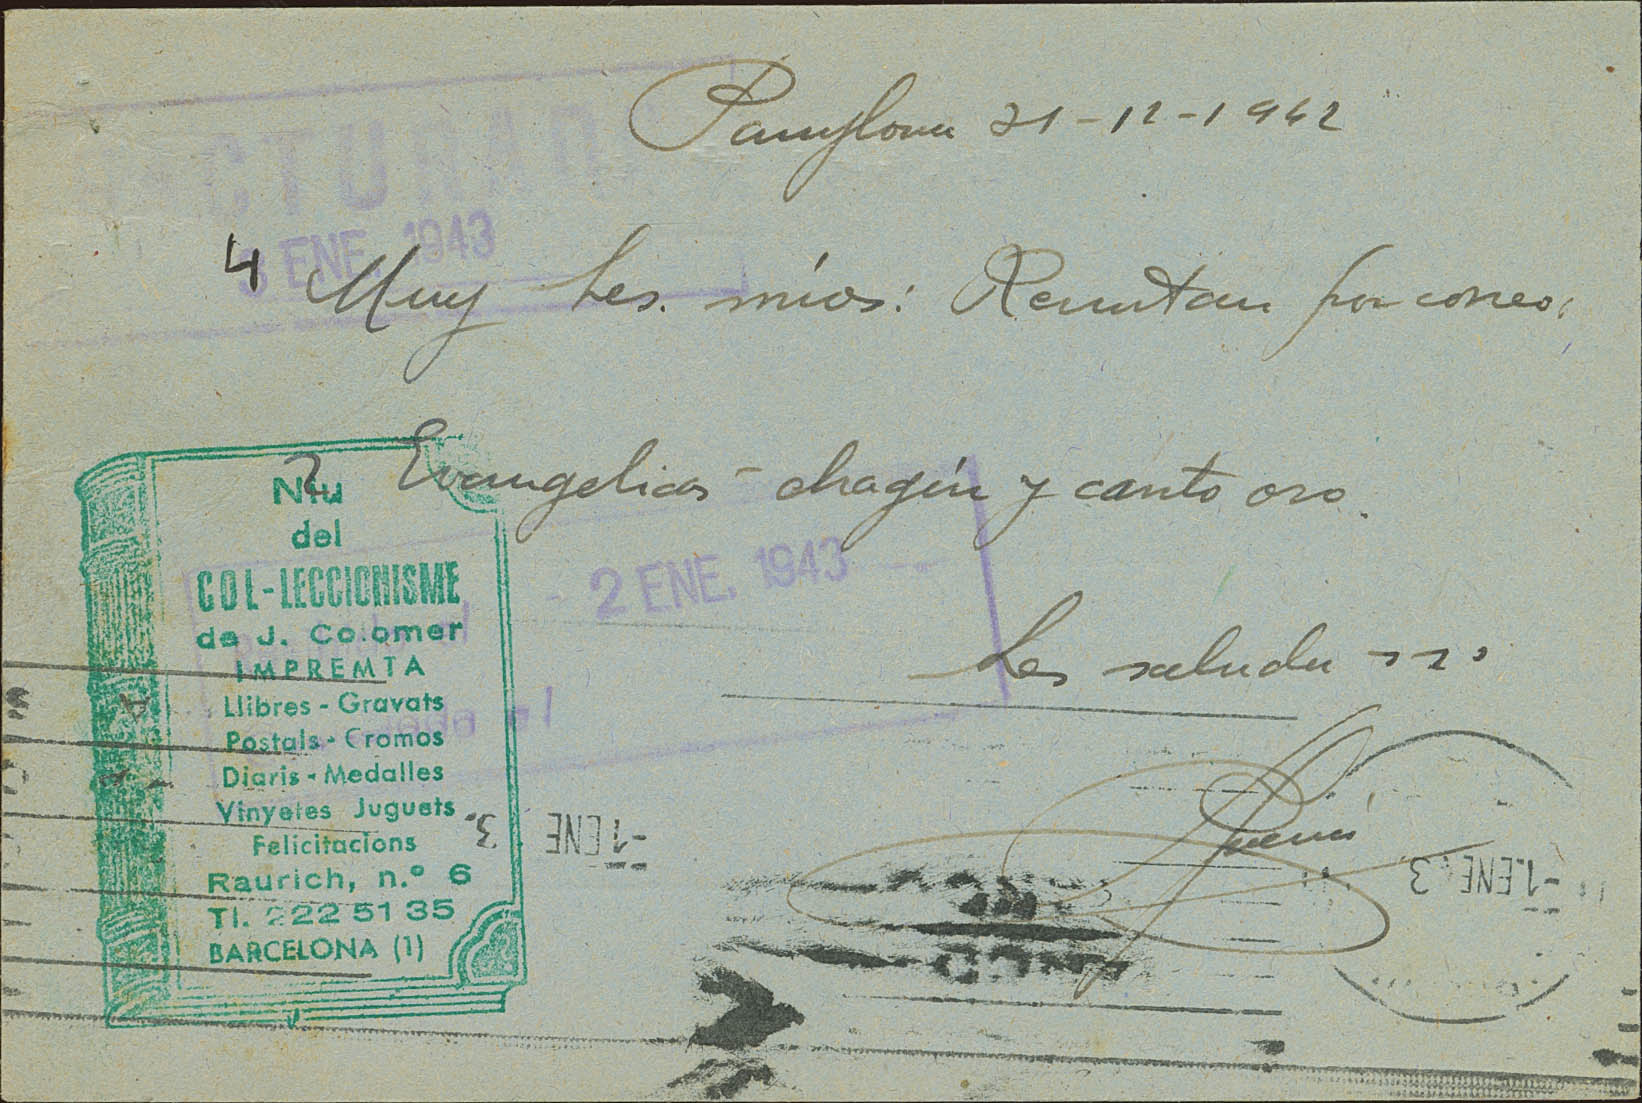 Pamplona 31-12-1942
FACTURADO
3 ENE. 1943
4 Muy Sres. míos: Remitan por correo,
2 Evangelios - chagrín y canto oro.
- 2 ENE. 1943
Les saluda
-1 ENE 3.
-1 ENE 3
Niu
del
COL-LECCIONISME
de J. Colomer
IMPREMTA
Llibres - Gravats
Postals - Cromos
Diaris - Medalles
Vinyetes Juguets
Felicitacions
Raurich, n.º 6
Tl. 222 51 35
BARCELONA (1)